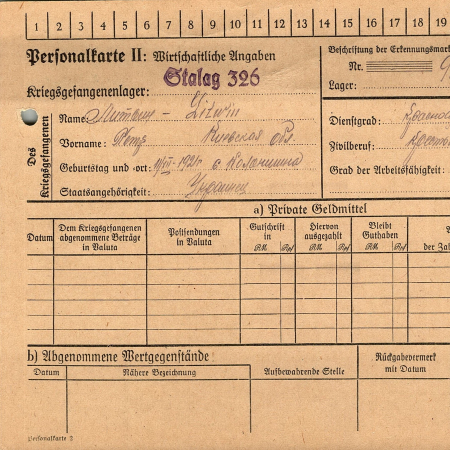 1 2 3 4 5 6 7 8 9 10 11 12 13 14 15 16 17 18 19
Personalkarte II: Wirtschaftliche Angaben
Beschriftung der Erkennungsmark
Nr.
Lager:
Kriegsgefangenenlager: Stalag 326
Des Kriegsgefangenen
Name: Литвин - Litwin
Vorname: Петр Киевская обл
Geburtstag und -ort: 1921 с
Staatsangehörigkeit: Украинец
Dienstgrad:
Zivilberuf:
Grad der Arbeitsfähigkeit:
a) Private Geldmittel
Datum
Dem Kriegsgefangenen abgenommene Beträge in Valuta
Postsendungen in Valuta
Gutschrift in
RM. Rpf
Hiervon ausgezahlt
RM. Rpf
Bleibt Guthaben
RM. Rpf
der Zah
b) Abgenommene Wertgegenstände
Datum
Nähere Bezeichnung
Aufbewahrende Stelle
Rückgabevermerk mit Datum
Personalkarte 2